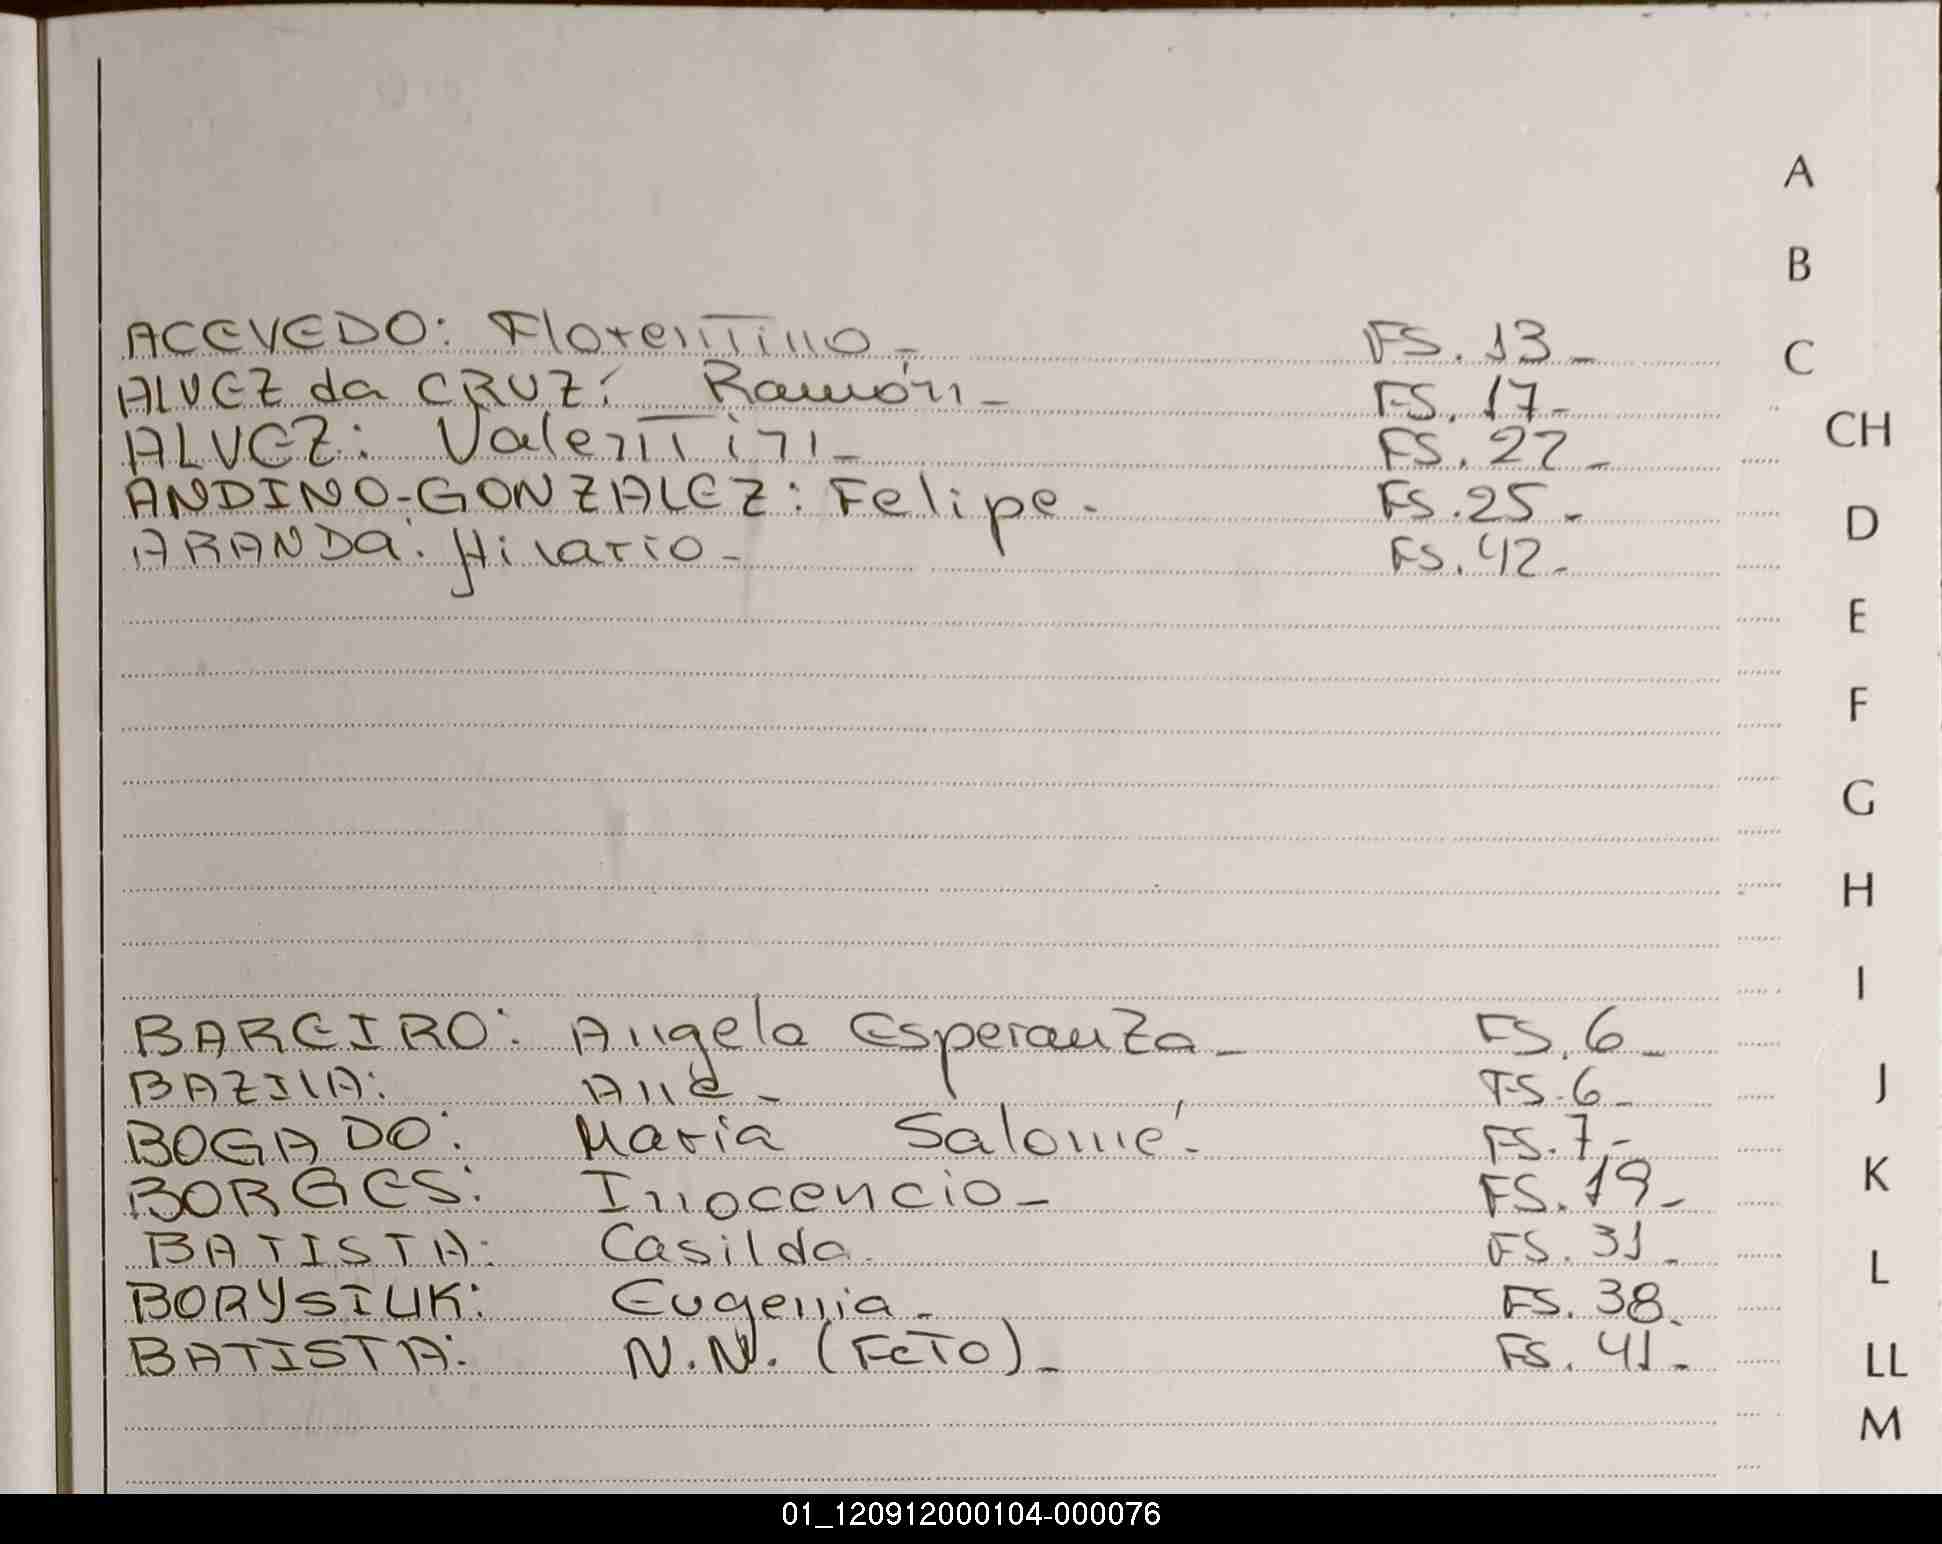 ACEVEDO: Florentino- FS. 13-
ALVEZ da CRUZ: Ramón- FS. 17-
ALVEZ: Valentin- FS. 22-
ANDINO-GONZALEZ: Felipe- FS. 25-
ARANDA: Hilario- FS. 42-
BAREIRO: Angela Esperanza- FS. 6-
BAZILA: FS. 6-
BOGADO: Maria Salomé- FS. 7-
BORGES: Inocencio- FS. 19-
BATISTA: Casilda- FS. 31-
BORYSIUK: Eugenia- FS. 38-
BATISTA: N.N. (FETO)- FS. 41-
A
B
C
CH
D
E
F
G
H
I
J
K
L
LL
M
01_120912000104-000076